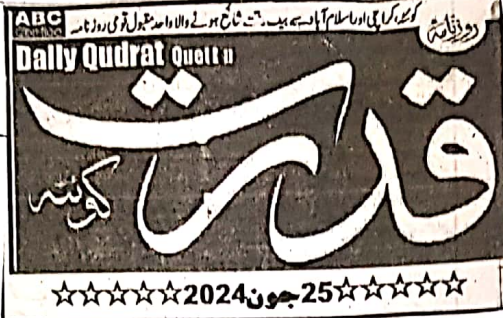 ABC
کوئٹہ، کراچی اور اسلام آباد سے بیک وقت شائع ہونے والا واحد مقبول قومی روزنامہ
روزنامہ
Daily Qudrat Quetta
قدرت
کوئٹہ
☆☆☆☆☆25جون2024☆☆☆☆☆